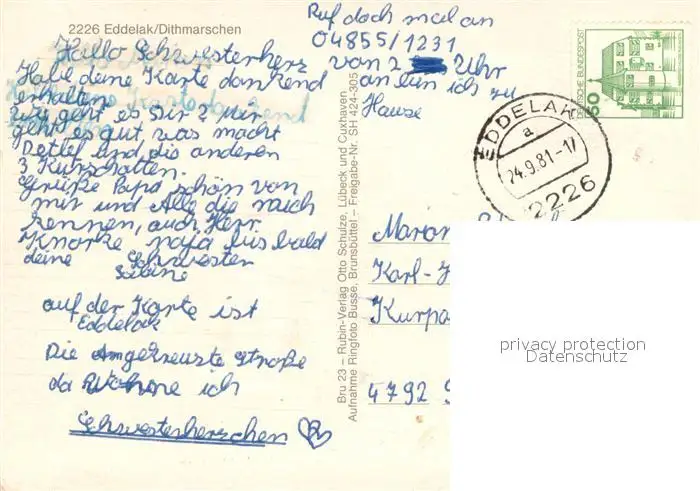 2226 Eddelak/Dithmarschen
Hallo Schwesterherz
Habe deine Karte dankend
erhalten
wie geht es Dir? Mir
geht es gut, was macht
Detlef und die anderen
3 Kurschatten.
Grüße Papa schön von
mir und Alle die mich
kennen, auch Herr.
Knorke naja bis bald
deine Schwester
Sabine
auf der Karte ist
Eddelak
Die Angekreuste Straße
da Wohne ich
Schwesterherschen
Ruf doch mal an
04855/1231
von 2 Uhr
an bin ich zu
Hause
Bru 23 – Rubin-Verlag Otto Schulze, Lübeck und Cuxhaven
Aufnahme Ringfoto Busse, Brunsbüttel – Freigabe-Nr. SH 424-305
DEUTSCHE BUNDESPOST
50
EDDELAK
a
24.9.81-17
2226
Marion
Karl-
Kurpa
4792
privacy protection
Datenschutz